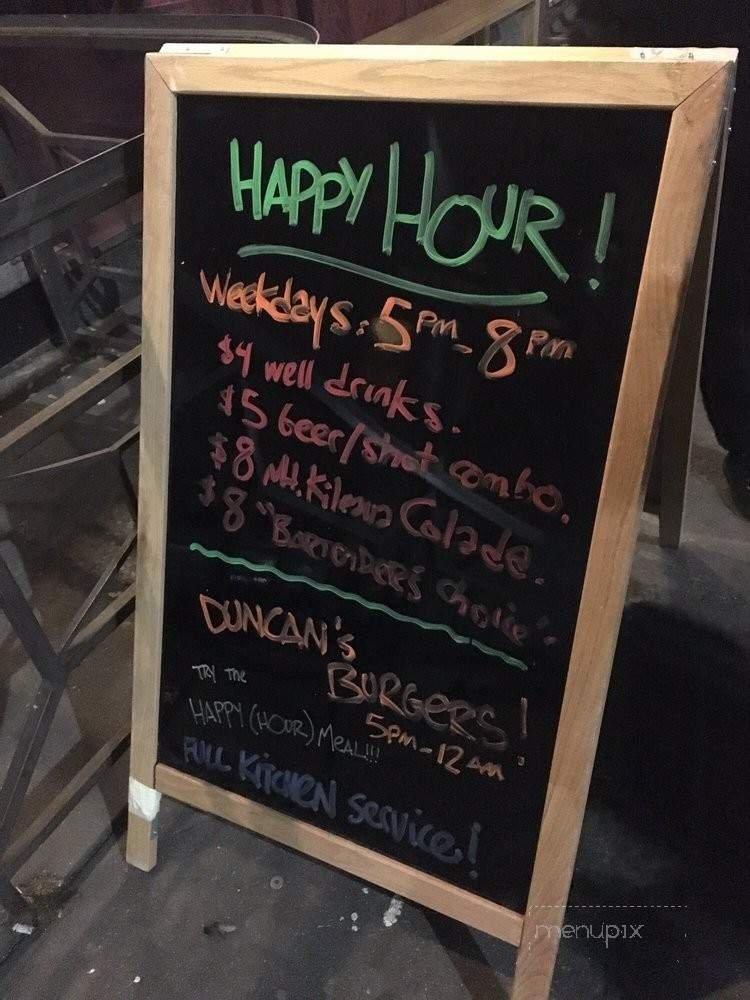 HAPPY HOUR!
Weekdays: 5PM - 8PM
$4 well drinks.
$5 beer/shot combo.
$8 Mt. Kileaua Colada.
$8 "BARTENDER'S choice".
DUNCAN'S
BURGERS!
TRY THE
5PM-12AM
HAPPY (HOUR) MEAL!!!
FULL KITCHEN service!
menupix